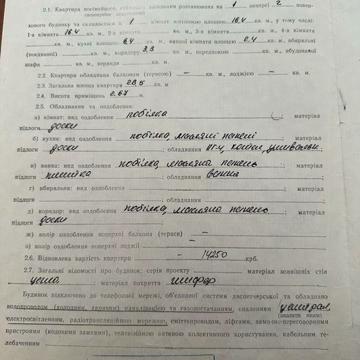 2.1. Квартира розташована на 1 поверсі 2 повер-
хового будинку та складається з 1 кімнат житловою площею 16,4 кв. м, у тому числі:
1-а кімната 16,4 кв. м, 2-а кімната кв. м, 3-а кімната кв. м, 4-а кімната
кв. м, кухні площею 6,4 кв. м, ванної кімнати площею 2,4 кв. м, вбиральні
(поєднаної) кв. м, коридору 3,3 кв. м, передпокою кв. м, вбудованої
шафи кв. м, кв. м.
2.2. Квартира обладнана балконом (терасою) — кв. м, лоджією — кв. м.
2.3. Загальна площа квартири 28,5 кв. м.
2.4. Висота приміщень м.
2.5. Обладнання та оздоблення:
а) кімнат: вид оздоблення побілка ; матеріал
підлоги доски
б) кухні: вид оздоблення побілка, масляні панелі матеріал
підлоги доски ; обладнання
в) ванна: вид оздоблення побілка, масляна панель матеріал
підлоги плитка ; обладнання ванна
г) вбиральня: вид оздоблення ; матеріал
підлоги ; обладнання
д) коридор: вид оздоблення побілка, масляна панель ; матеріал
підлоги доски
ж) колір оздоблення балкона (тераси) —
з) колір оздоблення лоджії —
2.6. Відновлена вартість квартири — 14250 крб.
2.7. Загальні відомості про будинок: серія проекту матеріал зовнішніх стін
цегла ; матеріал покриття шифер
Будинок підключено до телефонної мережі, об'єднаної системи диспетчерської та обладнано
водопроводом (холодним, гарячим), каналізацією та газопостачанням, опаленням централ.
електроосвітленням, радіотрансляційною мережею, сміттєпроводом, ліфтами, замково-переговорними
пристроями (кодовими замками), телевізійною антеною колективного користування, кабельним те-
лебаченням